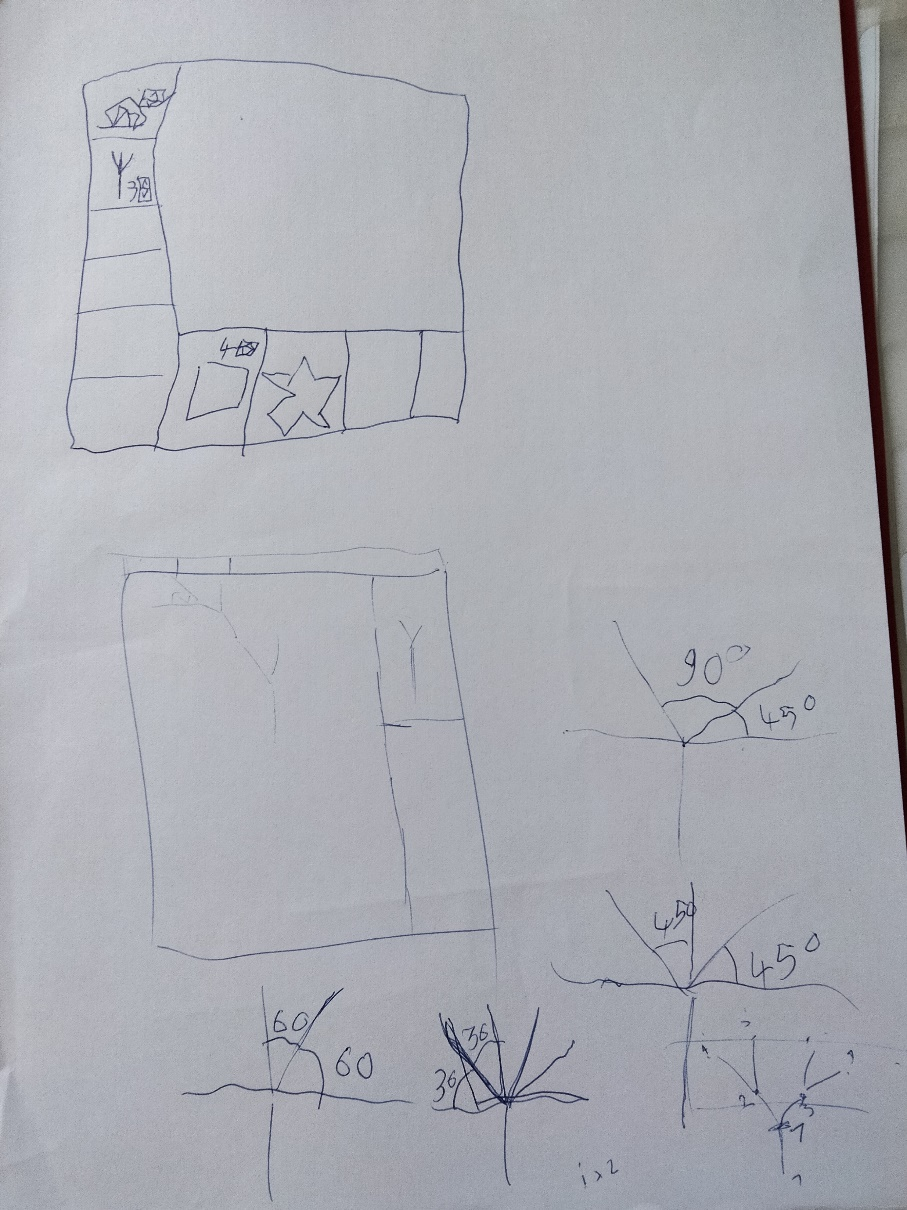 3
4
90°
45°
45°
45°
60
60
36
36
2
3
1
i>2